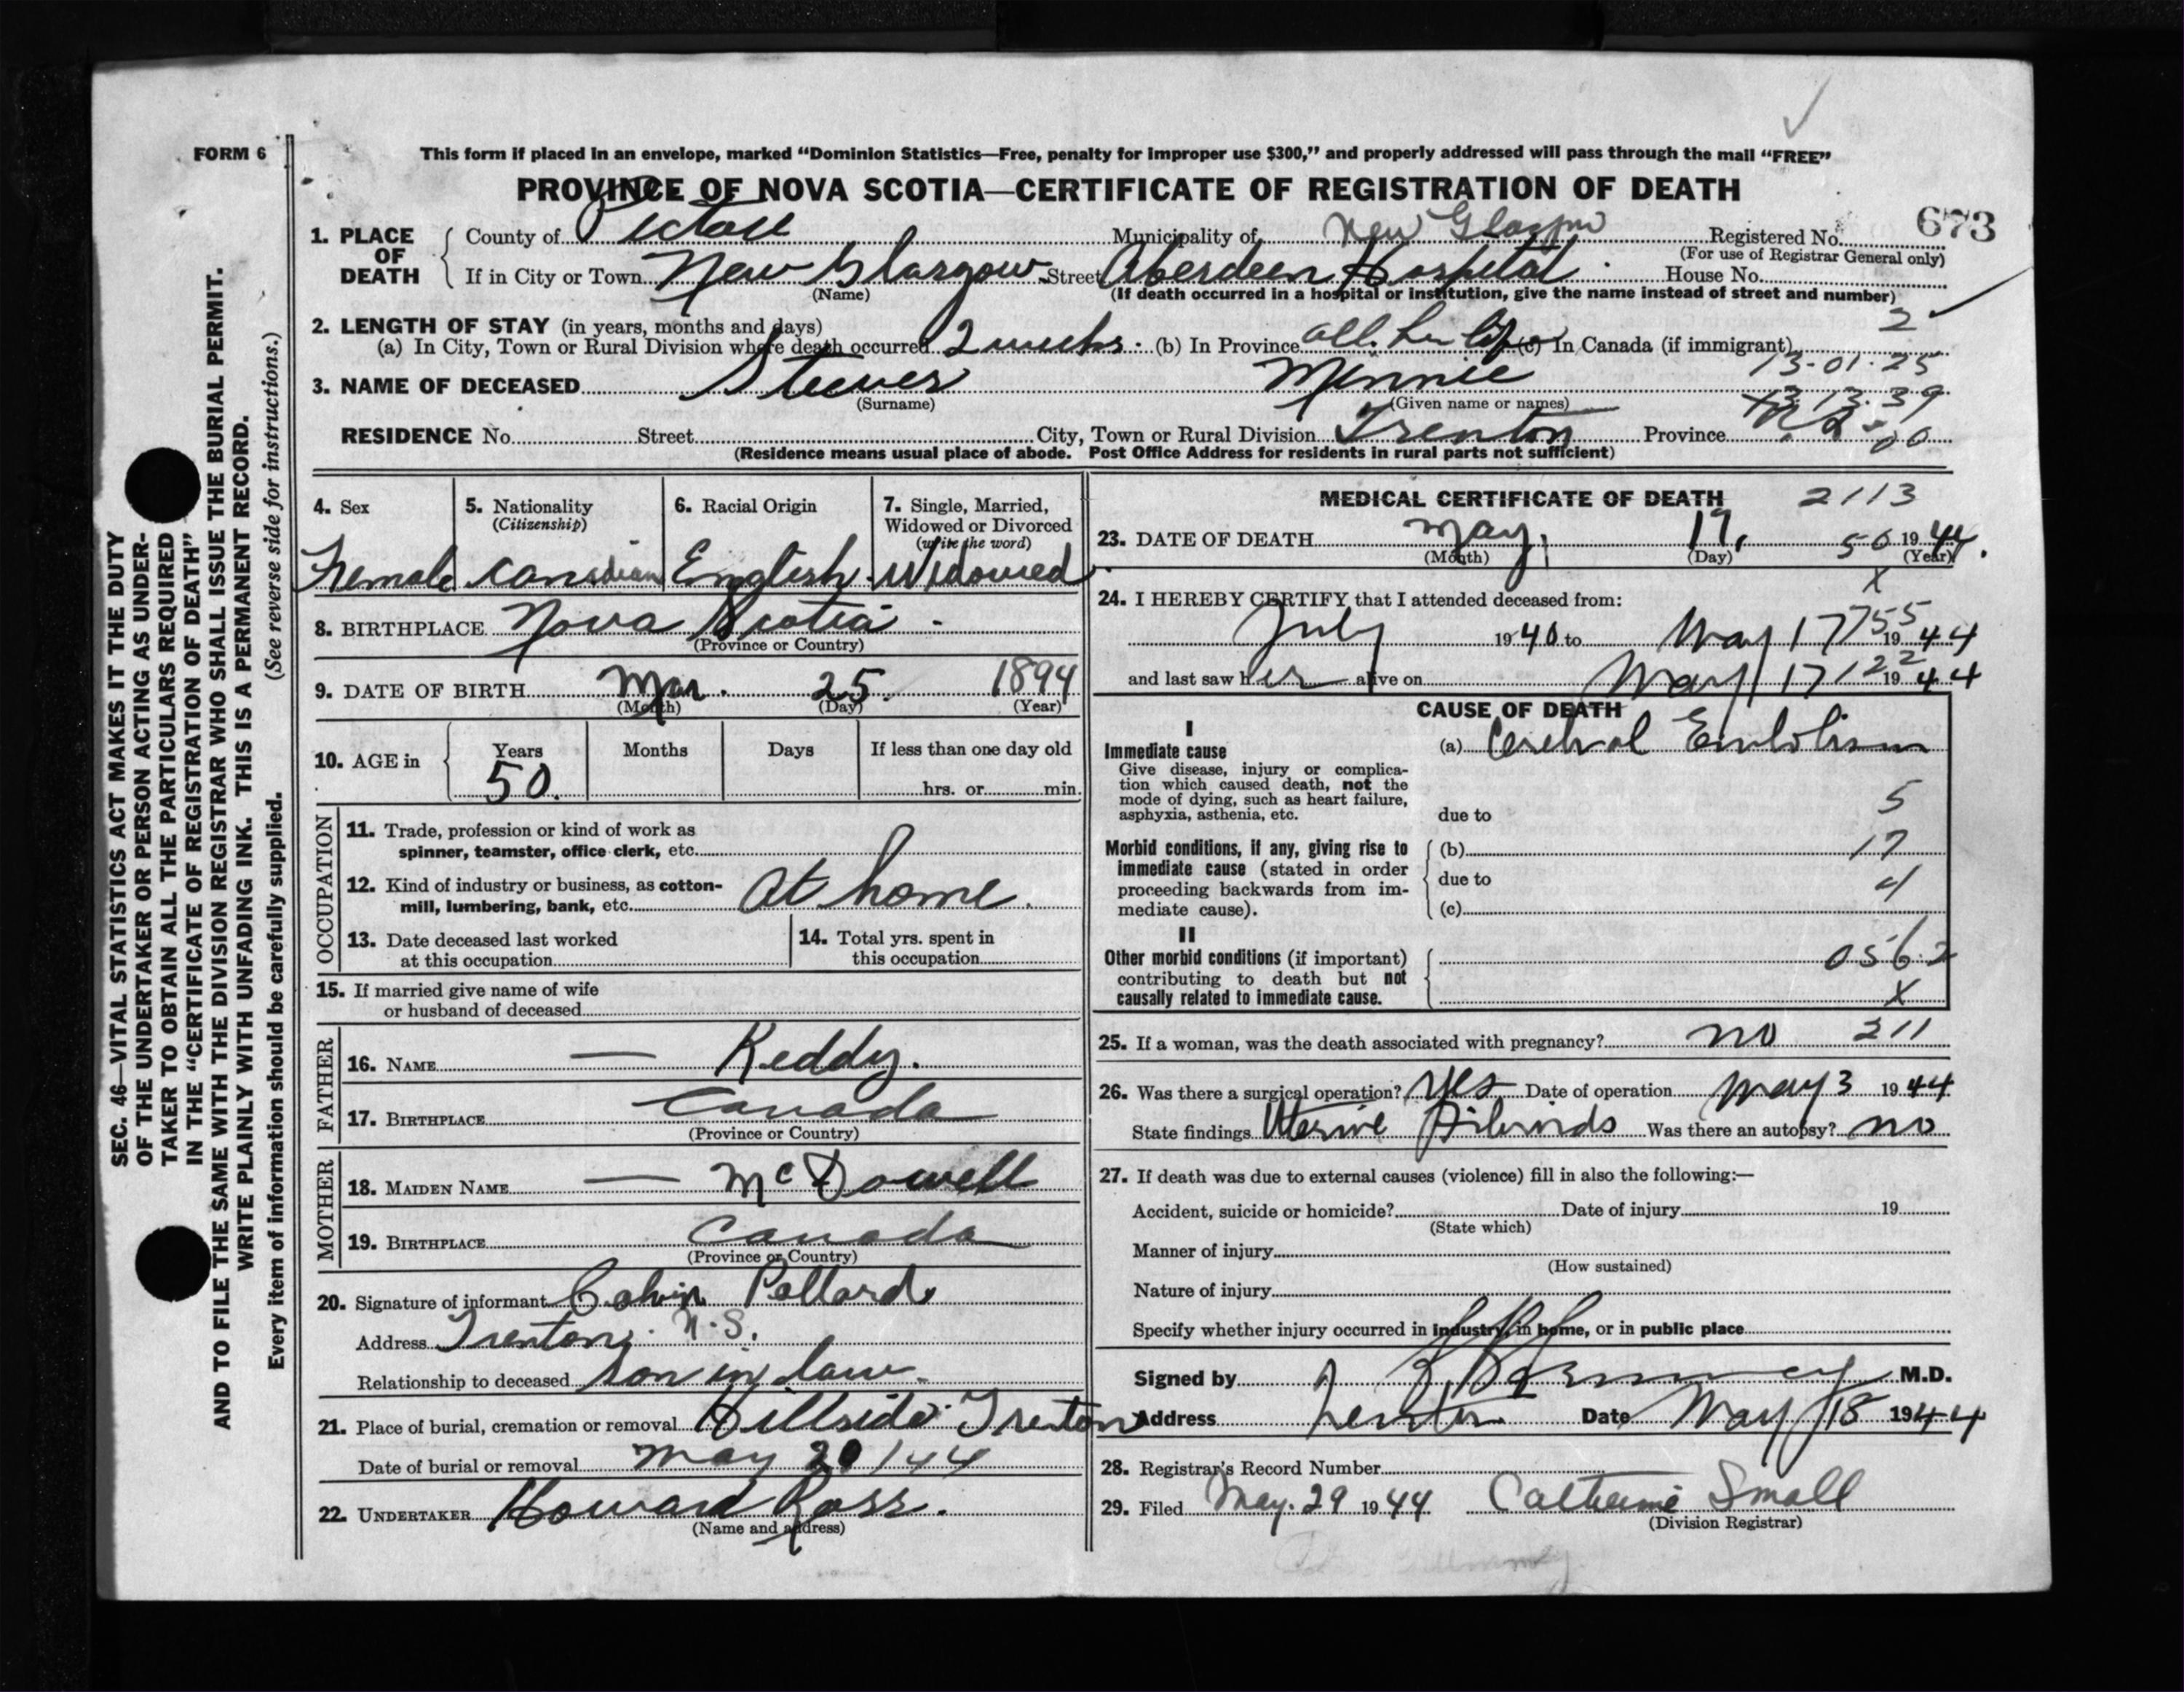 FORM 6
This form if placed in an envelope, marked “Dominion Statistics—Free, penalty for improper use $300,” and properly addressed will pass through the mail “FREE”
PROVINCE OF NOVA SCOTIA—CERTIFICATE OF REGISTRATION OF DEATH
673
1. PLACE OF DEATH
County of Pictou Municipality of New Glasgow Registered No.
(For use of Registrar General only)
If in City or Town New Glasgow Street Aberdeen Hospital House No.
(Name) (If death occurred in a hospital or institution, give the name instead of street and number)
2. LENGTH OF STAY (in years, months and days) 2
(a) In City, Town or Rural Division where death occurred 2 weeks. (b) In Province all her life (c) In Canada (if immigrant)
13-01-25
3. NAME OF DECEASED Steeves Minnie
(Surname) (Given name or names)
13.13.39
RESIDENCE No. Street City, Town or Rural Division Trenton Province
00
(Residence means usual place of abode. Post Office Address for residents in rural parts not sufficient)
4. Sex 5. Nationality (Citizenship) 6. Racial Origin 7. Single, Married, Widowed or Divorced (write the word)
Female Canadian English Widowed
8. BIRTHPLACE Nova Scotia
(Province or Country)
9. DATE OF BIRTH Mar. 25. 1894
(Month) (Day) (Year)
10. AGE in Years Months Days If less than one day old
50. hrs. or min.
OCCUPATION
11. Trade, profession or kind of work as
spinner, teamster, office clerk, etc.
12. Kind of industry or business, as cotton-
mill, lumbering, bank, etc. At home.
13. Date deceased last worked
at this occupation
14. Total yrs. spent in
this occupation
15. If married give name of wife
or husband of deceased
FATHER
16. NAME — Reddy.
17. BIRTHPLACE Canada
(Province or Country)
MOTHER
18. MAIDEN NAME — McDowell
19. BIRTHPLACE Canada
(Province or Country)
20. Signature of informant Calvin Pollard
Address Trenton, N.S.
Relationship to deceased Son in law.
21. Place of burial, cremation or removal Hillside Trenton
Date of burial or removal May 20/44
22. UNDERTAKER Howard Ross.
(Name and address)
MEDICAL CERTIFICATE OF DEATH 2113
23. DATE OF DEATH May, 17, 50 1944.
(Month) (Day) (Year)
X
24. I HEREBY CERTIFY that I attended deceased from:
July 1940 to May 17 755 1944
and last saw her alive on May 17 122 1944
CAUSE OF DEATH
I
Immediate cause (a) Cerebral Embolism
Give disease, injury or complica-
tion which caused death, not the
mode of dying, such as heart failure,
asphyxia, asthenia, etc. due to 5
Morbid conditions, if any, giving rise to (b) 17
immediate cause (stated in order
proceeding backwards from im- due to 4
mediate cause). (c)
II
Other morbid conditions (if important) 056.2
contributing to death but not
causally related to immediate cause. X
25. If a woman, was the death associated with pregnancy? no 211
26. Was there a surgical operation? Yes Date of operation May 3 1944
State findings Uterine Fibroids Was there an autopsy? no
27. If death was due to external causes (violence) fill in also the following:—
Accident, suicide or homicide? Date of injury 19
(State which)
Manner of injury
(How sustained)
Nature of injury
Specify whether injury occurred in industry, in home, or in public place
Signed by M.D.
Address Trenton Date May 18 1944
28. Registrar's Record Number
29. Filed May. 29 1944 Catherine Small
(Division Registrar)
SEC. 46—VITAL STATISTICS ACT MAKES IT THE DUTY
OF THE UNDERTAKER OR PERSON ACTING AS UNDER-
TAKER TO OBTAIN ALL THE PARTICULARS REQUIRED
IN THE “CERTIFICATE OF REGISTRATION OF DEATH”
AND TO FILE THE SAME WITH THE DIVISION REGISTRAR WHO SHALL ISSUE THE BURIAL PERMIT.
WRITE PLAINLY WITH UNFADING INK. THIS IS A PERMANENT RECORD.
Every item of information should be carefully supplied. (See reverse side for instructions.)